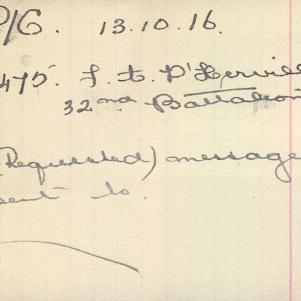 P/G. 13.10.16.
475. L. G. D'Hervill
32nd Battalion
(Requested) message
sent to.